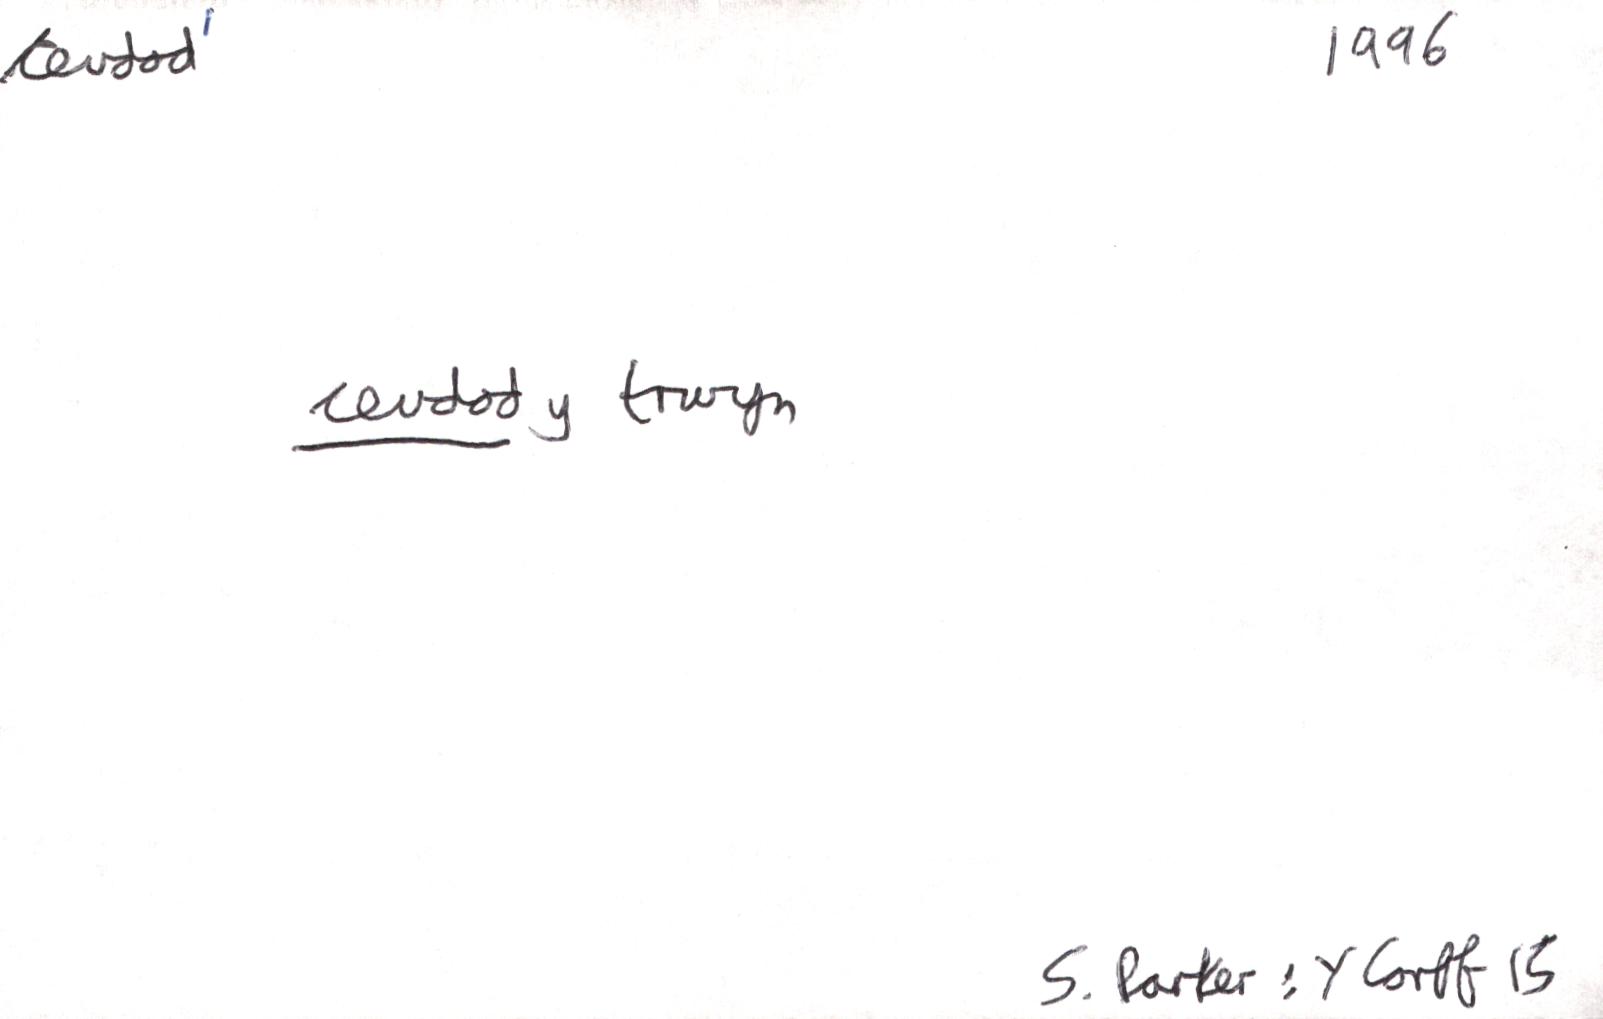 ceudod¹ 1996
ceudod y trwyn
S. Parker : Y Corff 15